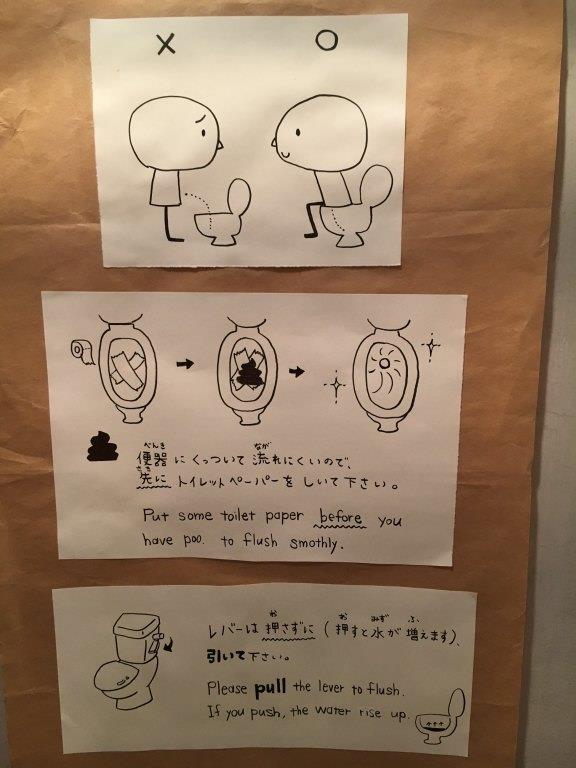 × ○
便器にくっついて流れにくいので、
先にトイレットペーパーをしいて下さい。
Put some toilet paper before you
have poo. to flush smothly.
レバーは押さずに(押すと水が増えます)、
引いて下さい。
Please pull the lever to flush.
If you push, the water rise up.